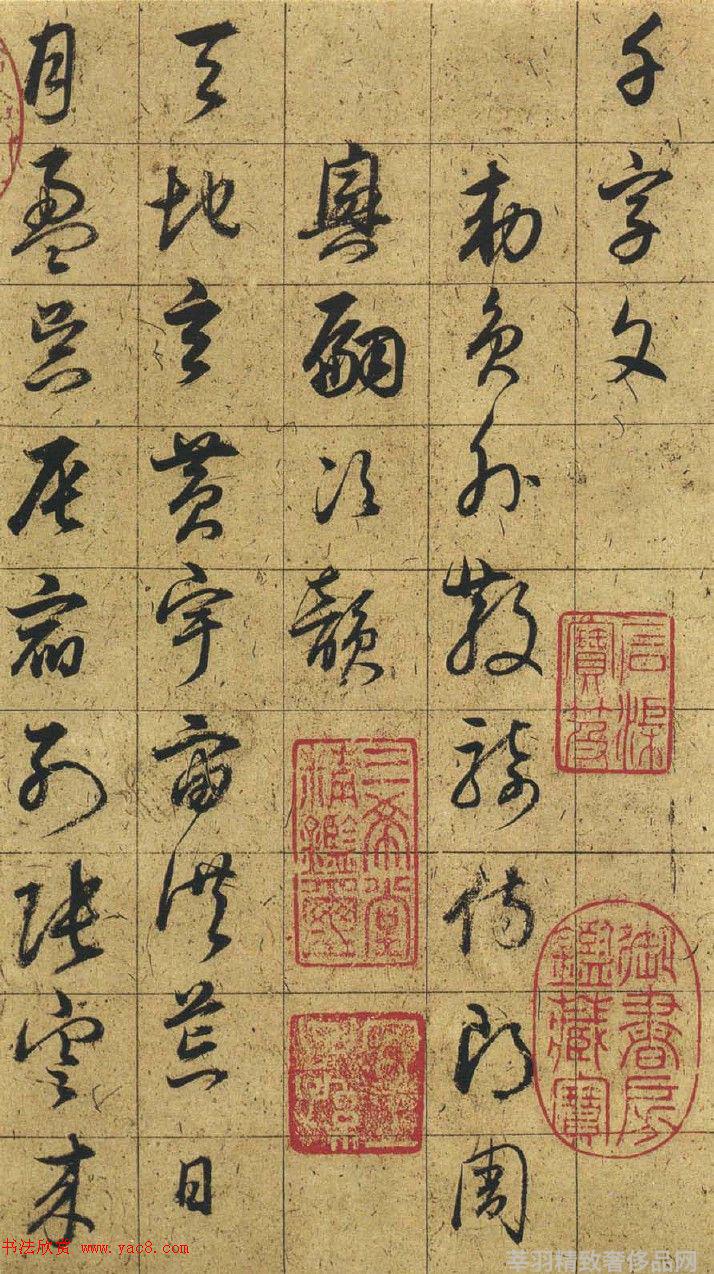 千字文
勅員外散騎侍郎周
興嗣次韻
天地玄黃宇宙洪荒日
月盈昃辰宿列張寒來
石渠寶笈
御書房鑑藏寶
三希堂精鑑璽
书法欣赏 www.yac8.com
莘羽精致奢侈品网